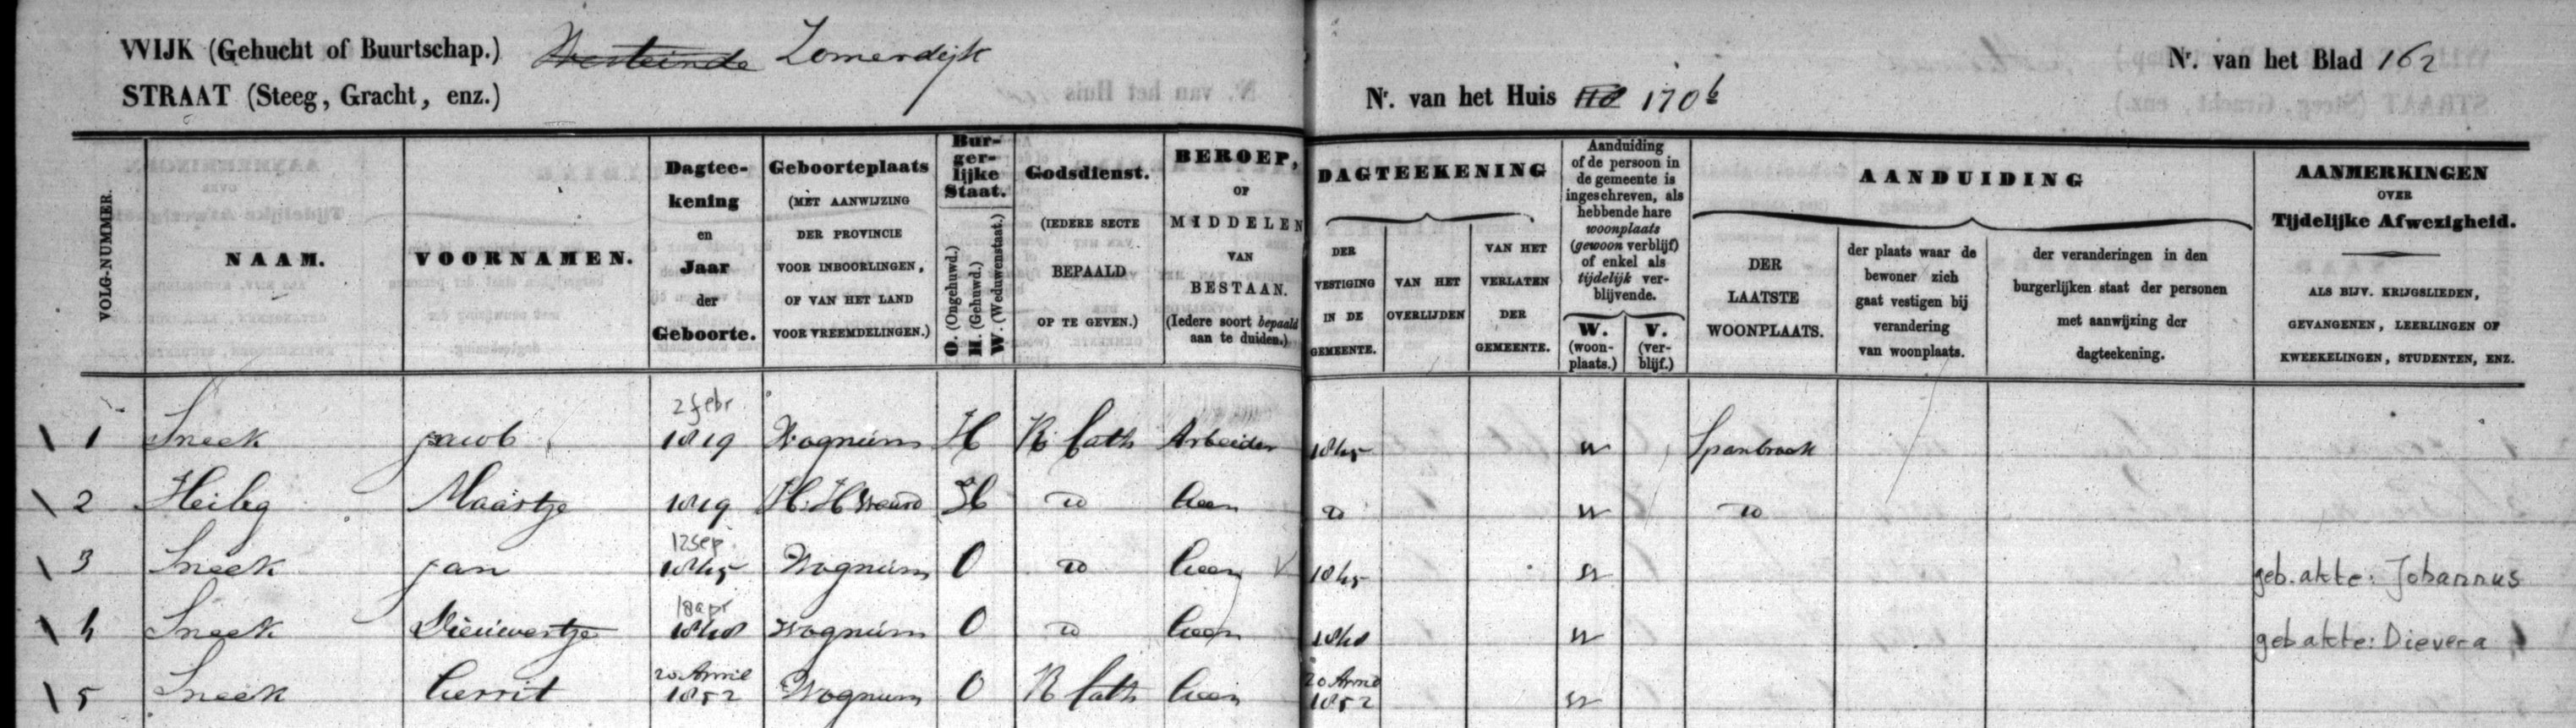 WIJK (Gehucht of Buurtschap.) Westeinde Zomerdijk
STRAAT (Steeg, Gracht, enz.)
Nr. van het Huis 170 b
Nr. van het Blad 162
VOLG-NUMMER.
NAAM.
VOORNAMEN.
Dagtee-
kening
en
Jaar
der
Geboorte.
Geboorteplaats
(MET AANWIJZING
DER PROVINCIE
VOOR INBOORLINGEN,
OF VAN HET LAND
VOOR VREEMDELINGEN.)
Bur-
ger-
lijke
Staat.
O. (Ongehuwd.)
H. (Gehuwd.)
W. (Weduwenstaat.)
Godsdienst.
(IEDERE SECTE
BEPAALD
OP TE GEVEN.)
BEROEP,
OF
MIDDELEN
VAN
BESTAAN.
(Iedere soort bepaald
aan te duiden.)
DAGTEEKENING
DER
VESTIGING
IN DE
GEMEENTE.
VAN HET
OVERLIJDEN
VAN HET
VERLATEN
DER
GEMEENTE.
Aanduiding
of de persoon in
de gemeente is
ingeschreven, als
hebbende hare
woonplaats
(gewoon verblijf)
of enkel als
tijdelijk ver-
blijvende.
W.
(woon-
plaats.)
V.
(ver-
blijf.)
AANDUIDING
DER
LAATSTE
WOONPLAATS.
der plaats waar de
bewoner zich
gaat vestigen bij
verandering
van woonplaats.
der veranderingen in den
burgerlijken staat der personen
met aanwijzing der
dagteekening.
AANMERKINGEN
OVER
Tijdelijke Afwezigheid.
ALS BIJV. KRIJGSLIEDEN,
GEVANGENEN, LEERLINGEN OF
KWEEKELINGEN, STUDENTEN, ENZ.
2 febr
1 Sneek Jacob 1819 Wognum H R Cath Arbeider 1845 W Spanbroek
2 Heilig Maartje 1819 H.H.Waard H do Geen do W do
12 sep
3 Sneek Jan 1845 Wognum O do Geen 1845 W geb. akte: Johannus
18 apr
4 Sneek Dieuwertje 1848 Wognum O do Geen 1848 W geb akte: Dievera
20 April 20 April
5 Sneek Gerrit 1852 Wognum O R Cath Geen 1852 W